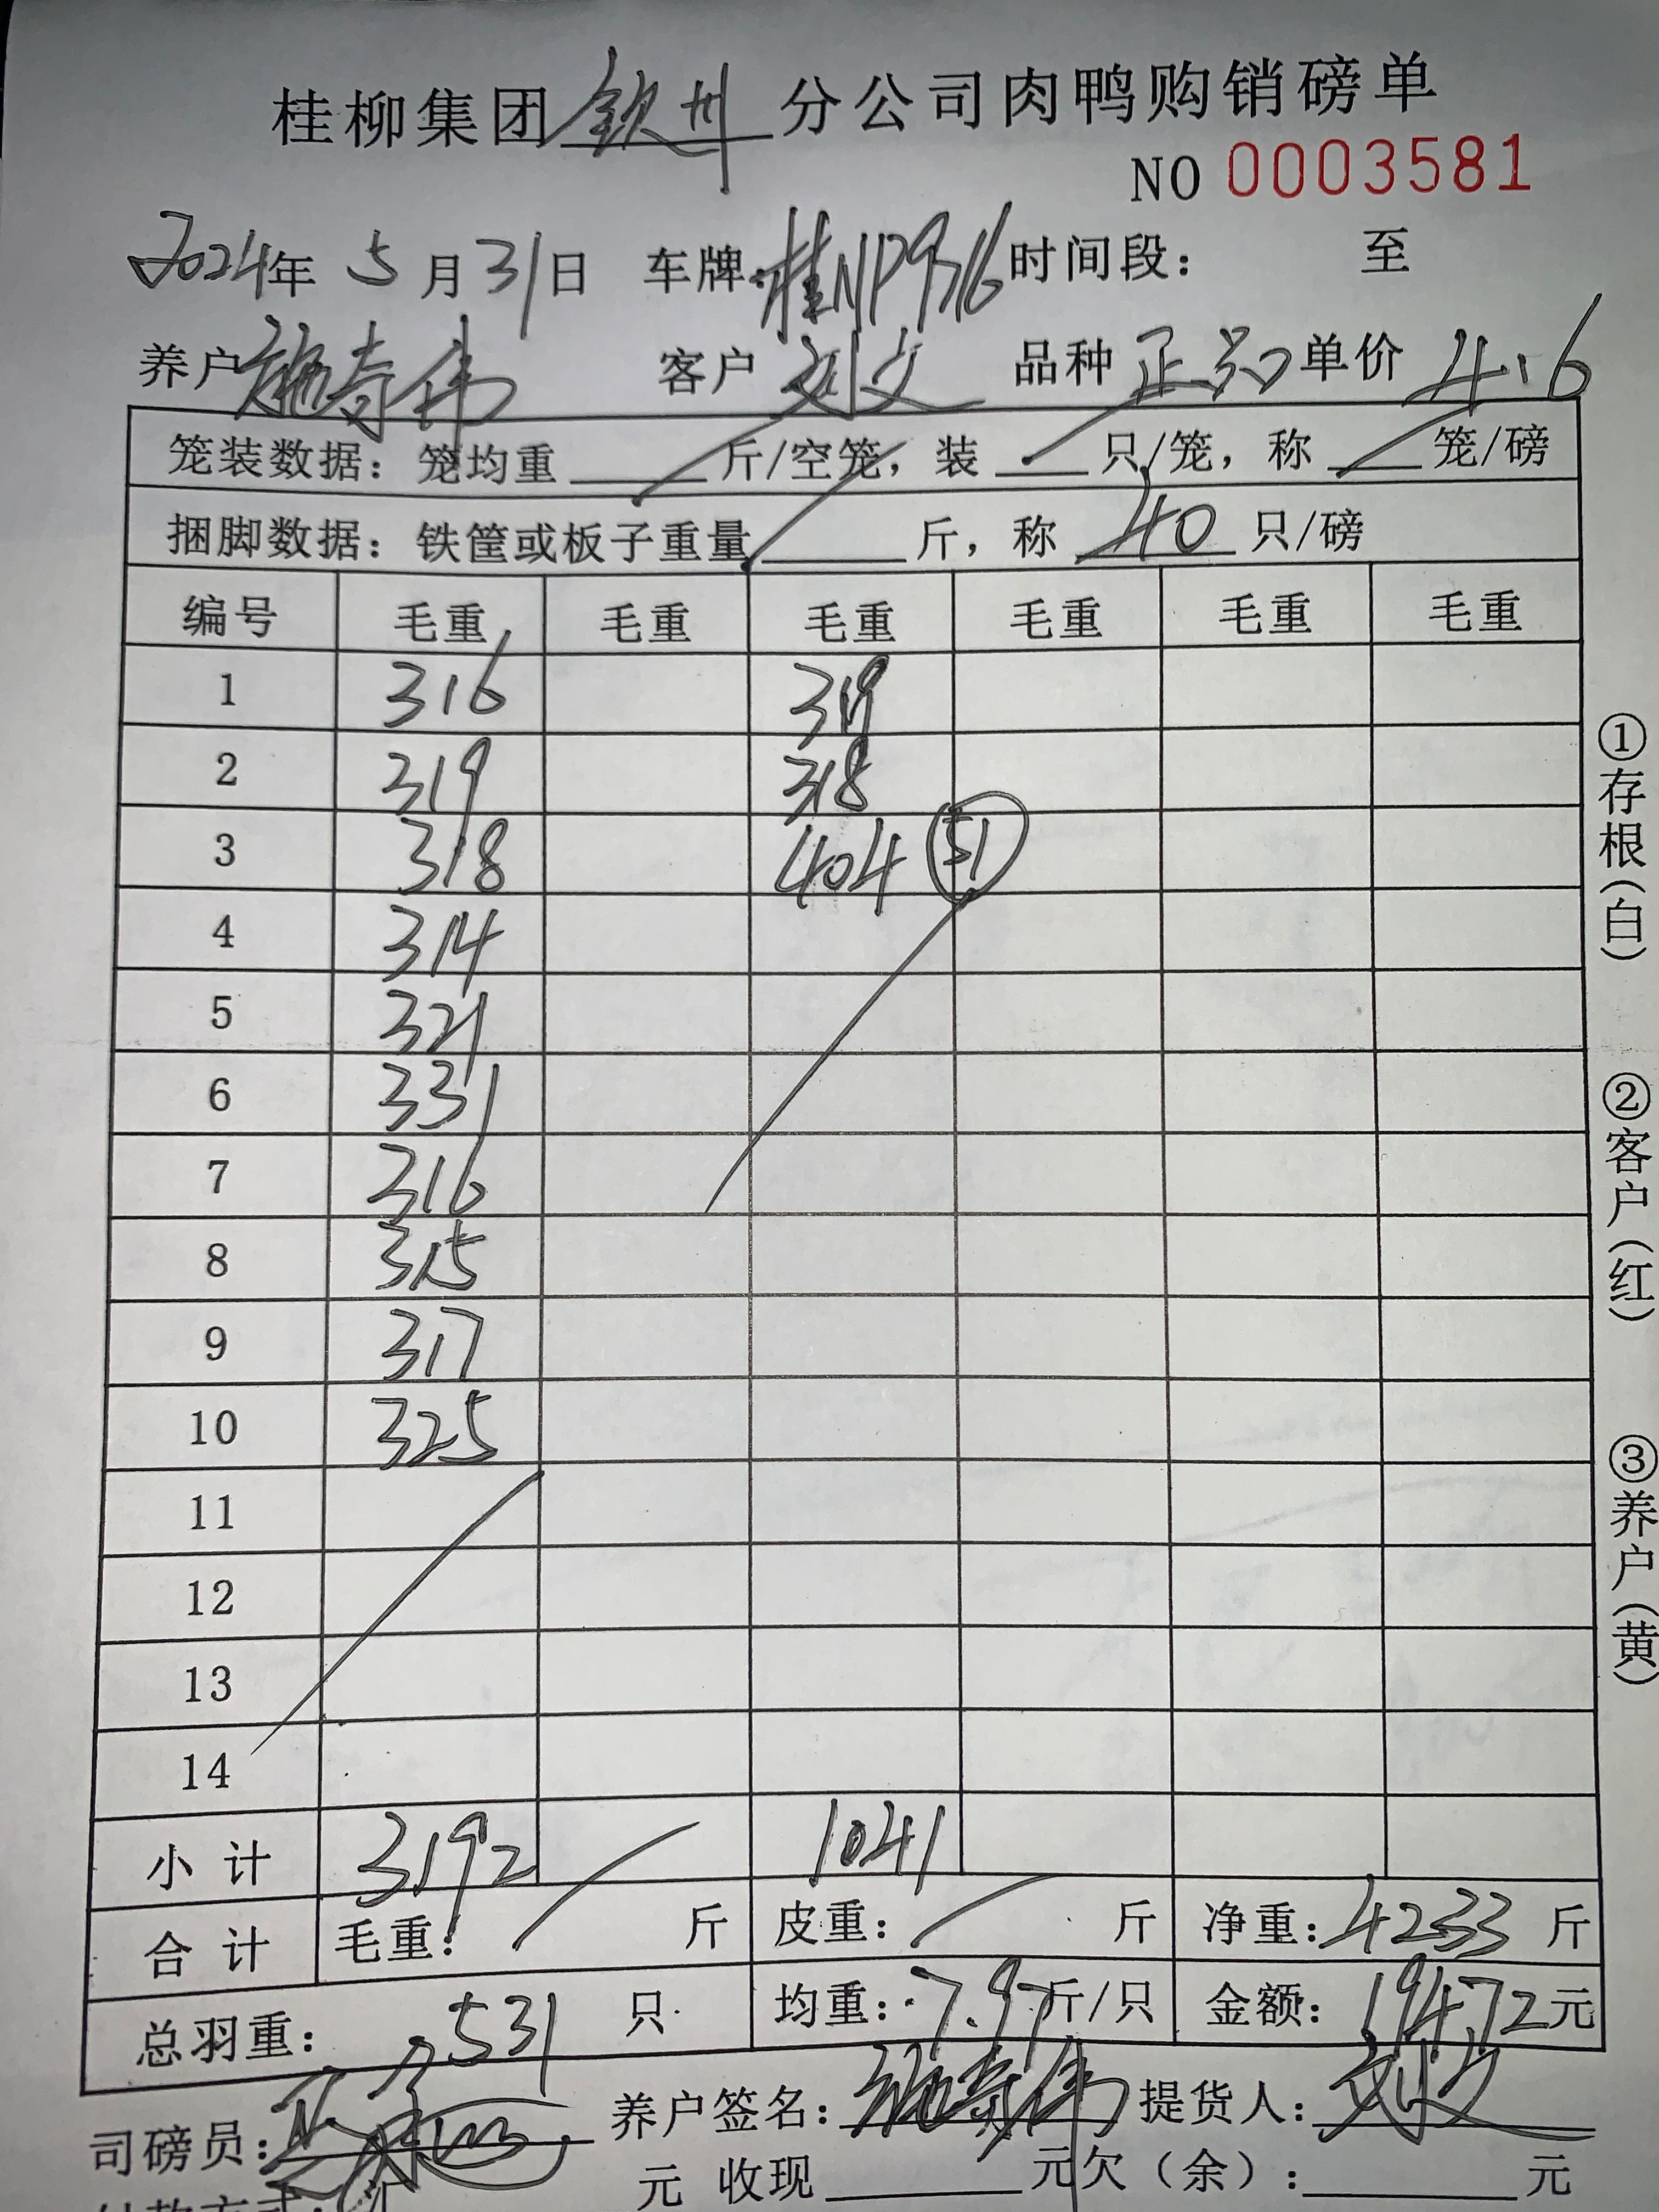 桂柳集团 钦州 分公司肉鸭购销磅单
NO 0003581
2024年 5 月 31 日 车牌:桂NP9316 时间段: 至
养户 施寿伟 客户 刘文 品种 正品 单价 4.6
笼装数据: 笼均重 斤/空笼, 装 只/笼, 称 笼/磅
捆脚数据: 铁筐或板子重量 斤, 称 40 只/磅
编号 毛重 毛重 毛重 毛重 毛重 毛重
1 316 319
2 319 318
3 318 404 51
4 314
5 321
6 331
7 316
8 315
9 317
10 325
11
12
13
14
小计 3192 1041
合计 毛重: 斤 皮重: 斤 净重: 4233 斤
总羽重: 531 只 均重: 7.97 斤/只 金额: 19472 元
司磅员: 养户签名: 施寿伟 提货人: 刘文
付款方式: 元 收现 元欠(余): 元
①存根(白)
②客户(红)
③养户(黄)